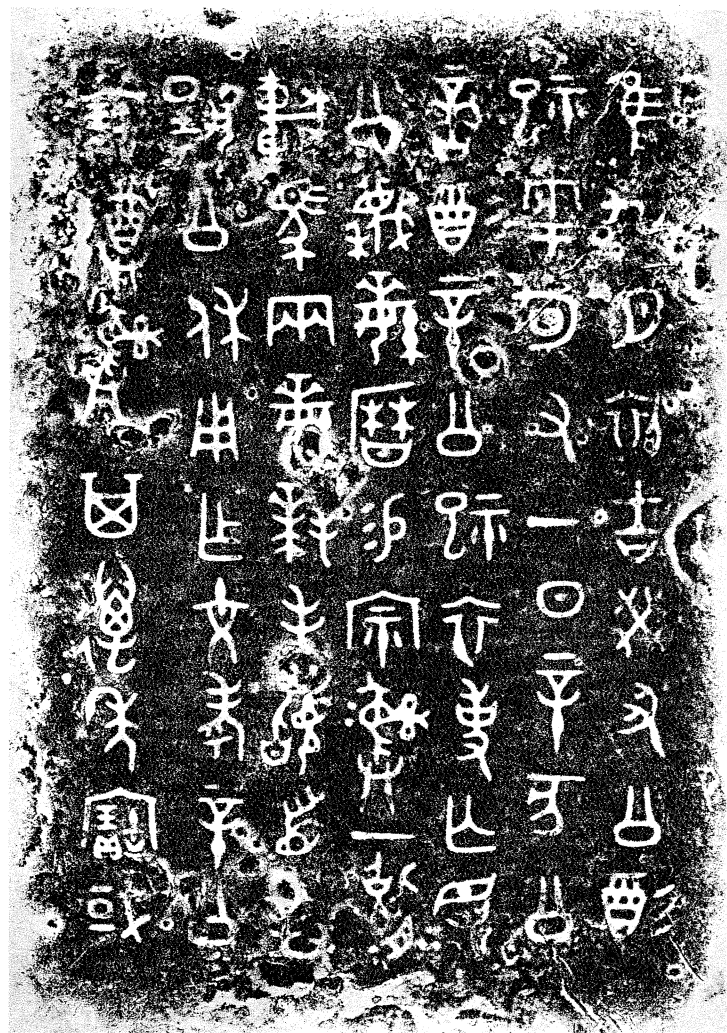 隹九月初吉癸丑公酻
祀雩旬又一日辛亥公
啻酻辛公祀衣事亡眔
公蔑繁曆易宗彝一肆
車馬兩繁拜手𩒨首對
揚公休用乍文考辛公
寶尊彝其萬年寶或